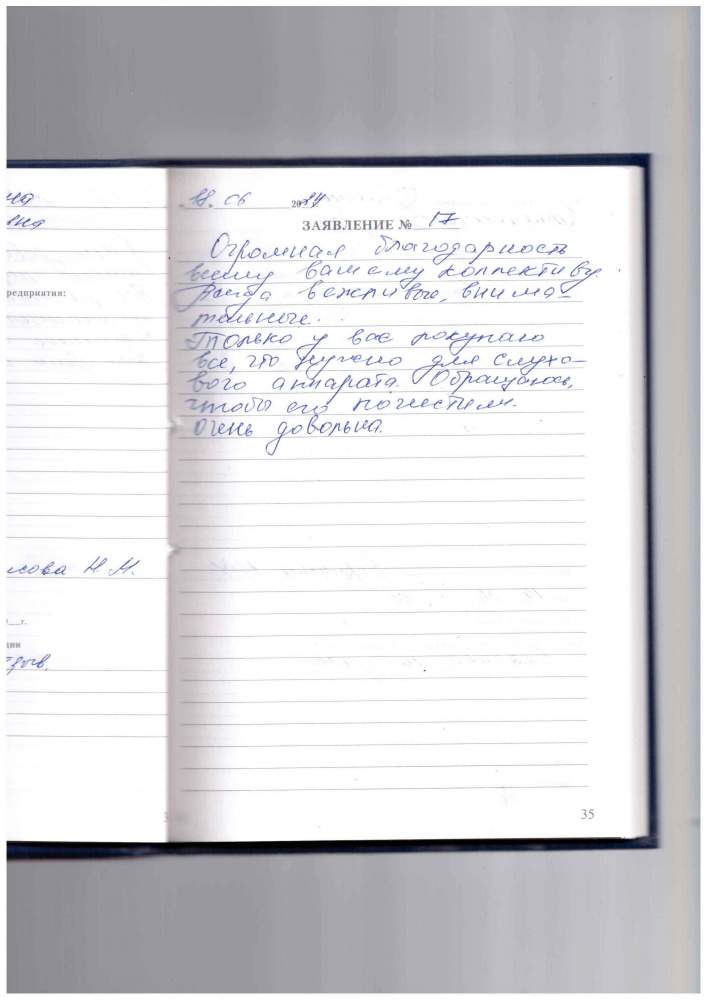 18. 06 2024
ЗАЯВЛЕНИЕ № 17
Огромная благодарность
всему вашему коллективу.
Всегда вежливые, внима-
тельные.
Только у вас покупаю
все, что нужно для слухо-
вого аппарата. Обращаюсь,
чтобы его почистили.
Очень довольна.
35
редприятия:
лова Н.М.
г.
ции